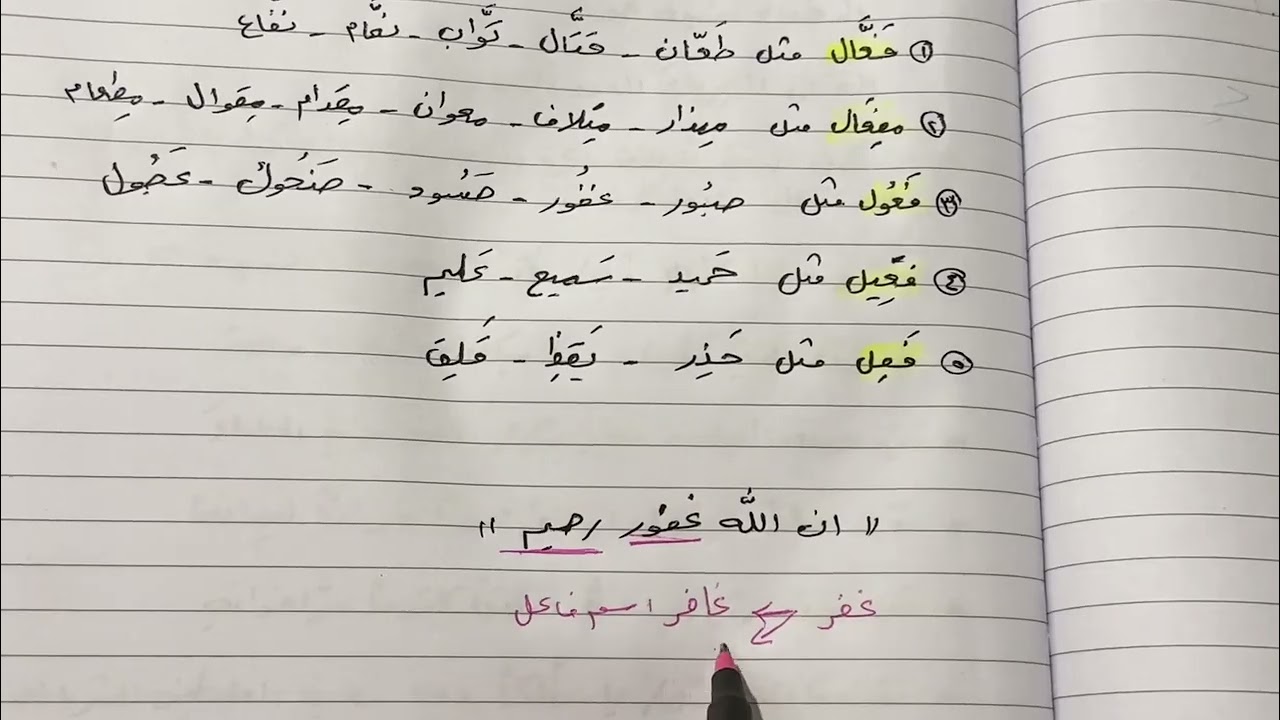 ① فَعَّال مثل طَعّان - قتَّال - توَّاب - نمَّام - نفاع
② مِفعَال مثل مِهذار - مِتلاف - معوان - مِقدام - مِقوال - مِطعام
③ فَعُول مثل صبُور - غفُور - حَسُود - ضَحُوك - عَجُول
④ فعِيل مثل حَميد - سَميع - عَليم
⑤ فَعِل مثل حَذِر - يَقِظ - قَلِق
" ان اللّٰه غفور رحيم "
غفر ⇐ غافر اسم فاعل